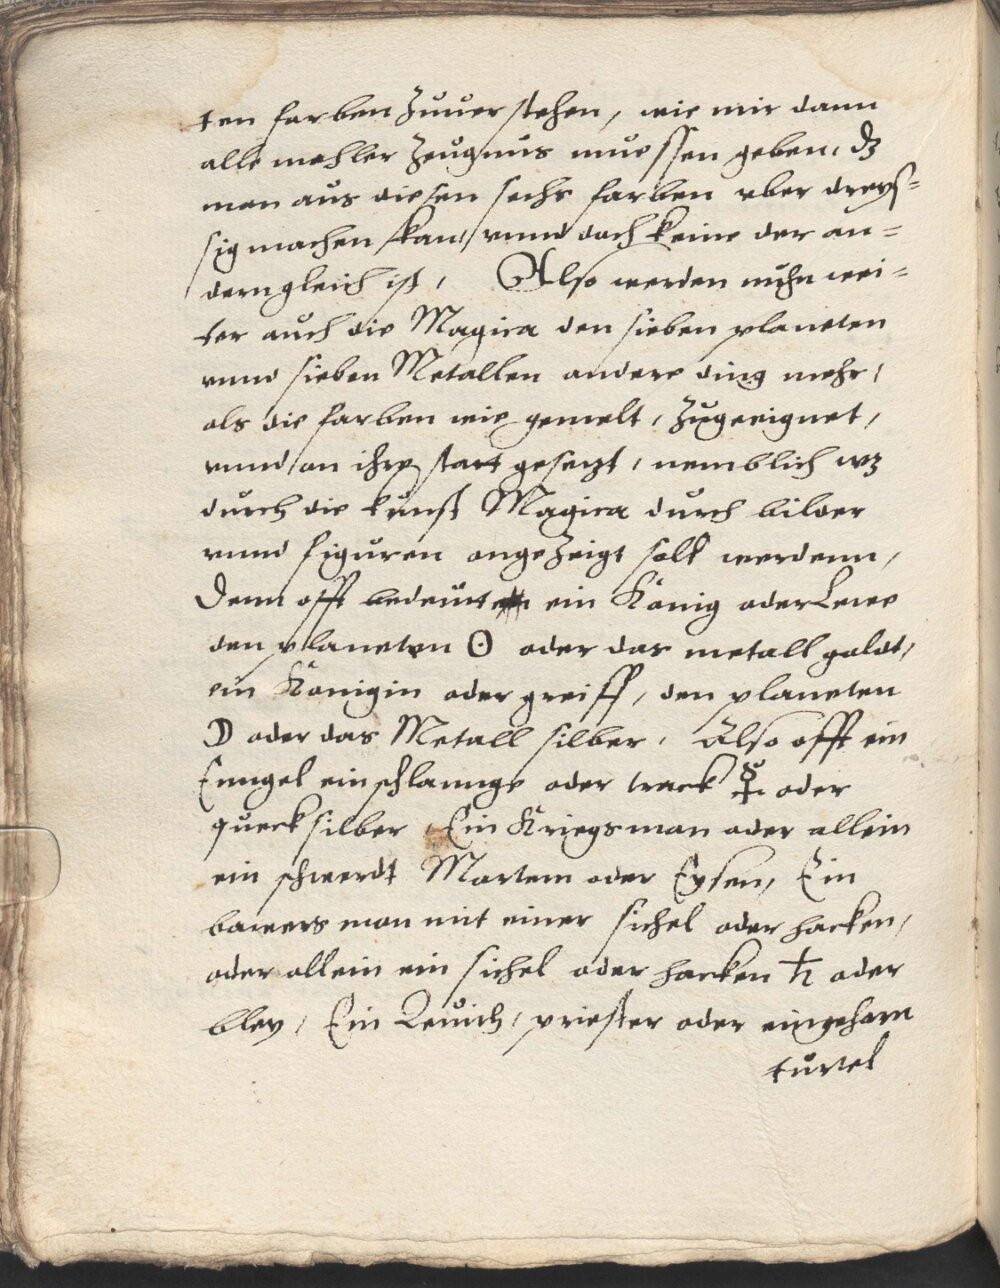 ten farben Zuuerstehen, wie mir dann
alle mahler Zeugnus muessen geben, dz
man aus diesen sechs farben vber dreys=
sig machen kan, vnnd doch keine der an=
dern gleich ist, Also werden nuhn wei=
ter auch die Magica den sieben planeten
vnnd sieben Metallen andere ding mehr,
als die farben wie gemelt, Zugeeignet,
vnnd an ihre statt gesetzt, nemblich wz
durch die kunst Magica durch bilder
vnnd figuren angeZeigt soll werdenn,
Denn offt bedeutt ein König oder Lewe
den planeten ☉ oder das metall goldt,
ein Königin oder greiff, den planeten
☽ oder das Metall silber, Also offt ein
Enngel ein schlannge oder track ☿ oder
quecksilber, Ein Kriegsman oder allein
ein schwerdt Martem oder Eysen, Ein
bawersman mit einer sichel oder hacken,
oder allein ein sichel oder hacken ♄ oder
bley, Ein priester oder eingehorn